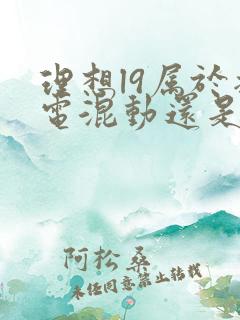 理想l9属於
電混動還是
阿松桑
未经同意禁止转载